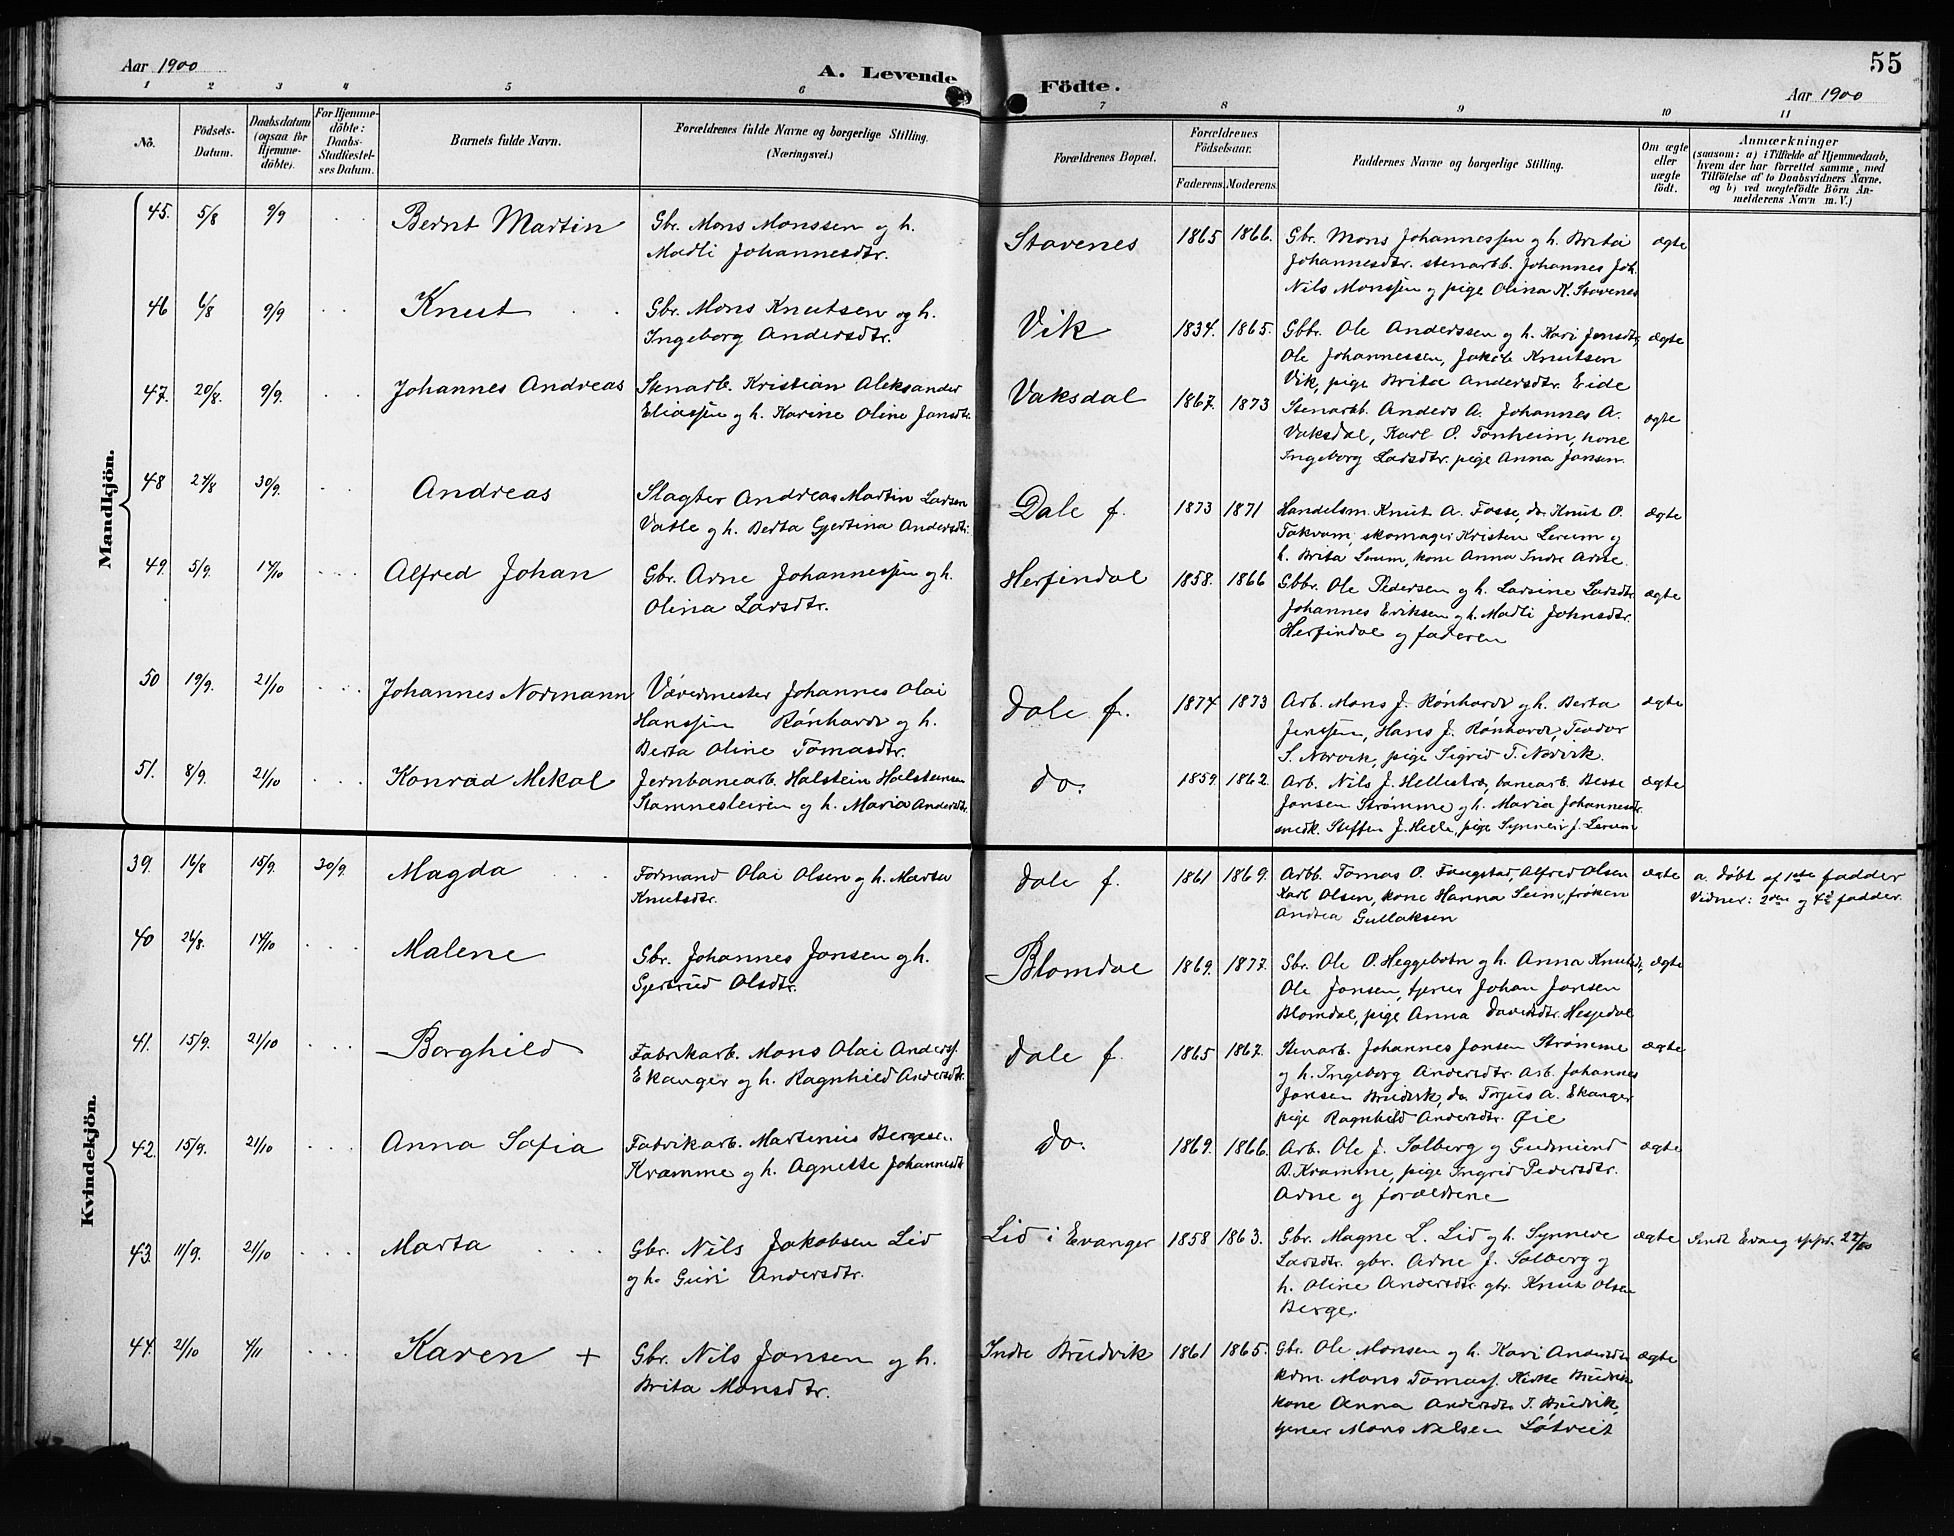 Aar 1900
A. Levende Födte.
55
Aar 1900
1 2 3 4 5 6 7 8 9 10 11
No.
Födsels-
Datum.
Daabsdatum
(ogsaa for
Hjemme-
döbte).
For Hjemme-
döbte:
Daabs-
Stadfæstel-
ses Datum.
Barnets fulde Navn.
Forældrenes fulde Navne og borgerlige Stilling.
(Næringsvei.)
Forældrenes Bopæl.
Forældrenes
Födselsaar.
Faderens. Moderens.
Faddernes Navne og borgerlige Stilling.
Om ægte
eller
uægte
født.
Anmærkninger
(saasom: a) i Tilfælde af Hjemmedaab,
hvem der har forrettet samme, med
Tilföielse af to Daabsvidners Navne.
og b) ved uegtefödte Börn An-
melderens Navn m. V.)
Mandkjön.
45. 5/8 9/9 Bernt Martin
Gbr. Mons Monssen og h.
Madli Johannesdtr.
Stavenes 1865 1866.
Gbr. Mons Johannessen og h. Brita
Johannesdtr. stenarbb. Johannes Joh.
Nils Monssen og pige Olina K. Stavenes
ægte
46 6/8 9/9 Knut
Gbr. Mons Knutsen og h.
Ingeborg Andersdtr.
Vik 1834. 1865.
Gbbr. Ole Anderssen og h. Kari Jonsdtr,
Ole Johannessen, Jakob Knutsen
Vik, pige Brita Andersdtr. Eide
ægte
47. 20/8. 9/9. Johannes Andreas
Stenarb. Kristian Aleksander
Eliassen og h. Karine Oline Jonsdtr.
Vaksdal 1867. 1873
Stenarbb. Anders A. Johannes A.
Vaksdal, Karl O. Tonheim, kone
Ingeborg Larsdtr. pige Anna Jansen.
ægte
48 27/8 30/9. Andreas
Slagter Andreas Martin Larsen
Vatle og h. Berta Gjertina Andersdtr.
Dale f. 1873 1871
Handelsm. Knut A. Fosse, do. Knut O.
Takvam, skomager Kristen Lerum og
h. Brita Lerum, kone Anna Indre Arne.
ægte
49. 5/9. 14/10 Alfred Johan
Gbr. Arne Johannessen og h.
Olina Larsdtr.
Herfindal 1858. 1866
Gbbr. Ole Pedersen og h. Larsine Larsdtr.
Johannes Eriksen og h. Madli Johnsdtr.
Herfindal og faderen
ægte
50 19/9. 21/10 Johannes Normann
Vævermester Johannes Olai
Hanssen Rönhovde og h.
Berta Oline Tomasdtr.
Dale f. 1874 1873
Arb. Mons J. og h. Berta
Jenssen, Hans J. Teodor
S. Norvik, pige Sigrid T. Norvik.
ægte
51. 8/9. 21/10 Konrad Mikal
Jernbanearb. Halstein Halsteinsen
Stamnesleiren og h. Maria Andersdtr.
do. 1859. 1862.
Arb. Nils J. Hellestræ, banearb. Besse
Jansen Strömme og h. Maria Johannesdtr.
snedk. Steffen J. Helle, pige Synneiv J. Lerum
ægte
Kvindekjön.
39. 16/8 15/9. 30/9. Magda
Formand Olai Olsen og h. Marta
Knutsdtr.
Dale f. 1861 1869.
Arbb. Tomas O. Alfred Olsen
Karl Olsen, kone Hanna Seim, fröken
Andrea Gullaksen
ægte
a. döbt af 1ste fadder
Vidner: 2den og 4de fadder.
40 26/8. 14/10 Malene
Gbr. Johannes Jansen og h.
Gjertrud Olsdtr.
Blomdal 1869. 1877.
Gbr. Ole O. Heggebotn og h. Anna Knutsd,
Ole Jansen, tjener Johan Jansen
Blomdal, pige Anna Davidsdtr. Hesjedal
ægte
41. 15/9. 21/10 Borghild
Fabrikarb. Mons Olai Anderss.
Ekanger og h. Ragnhild Andersdtr.
Dale f. 1865 1867.
Stenarb. Johannes Jansen Strömme
og h. Ingeborg Andersdtr. Arb. Johannes
Jansen Brudvik, do. Torjus A. Ekanger
pige Ragnhild Andersdtr. Öie
ægte
42. 15/9. 21/10 Anna Sofia
Fabrikarb. Martinius Bergesen
Kramme og h. Agnette Johannesdtr
do. 1869. 1866.
Arb. Ole J. Solberg og Gudmund
B. Kramme, pige Ingrid Pedersdtr.
Arne og forældrene
ægte
43. 11/9. 21/10 Marta
Gbr. Nils Jakobsen Lid
og h. Guri Andersdtr.
Lid i Evanger 1858 1863.
Gbr. Magne L. Lid og h. Synneve
Larsdtr. gbr. Arne J. Solberg og
h. Oline Andersdtr. gbr. Knut Olsen
Berge.
ægte
Sendt Evang. 27/10
44. 2/10 4/11 Karen +
Gbr. Nils Jansen og h.
Brita Monsdtr.
Indre Brudvik 1861 1865.
Gbr. Ole Monsen og h. Kari Andersdtr
kdm. Mons Tomass. Brudvik
kone Anna Andersdtr. I. Brudvik,
tjener Mons Nilsen Lötveit
ægte